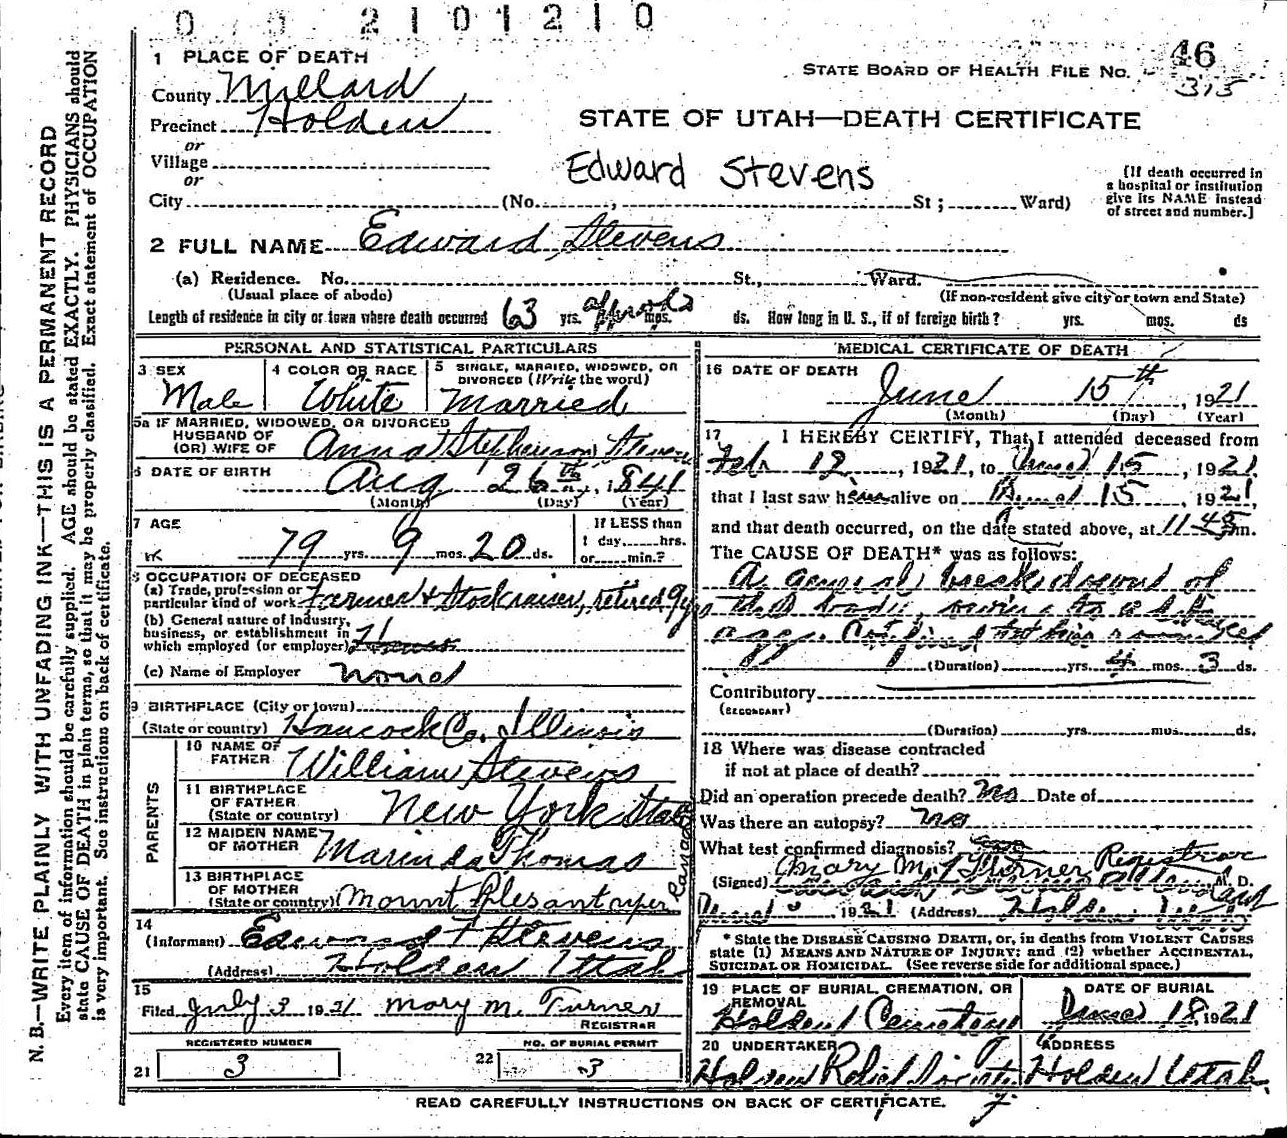 0 0 2 1 0 1 2 1 0
46
STATE BOARD OF HEALTH FILE NO. 315
STATE OF UTAH—DEATH CERTIFICATE
1 PLACE OF DEATH
County Millard
Precinct Holden
or
Village
or
City (No. , St ; Ward)
Edward Stevens
[If death occurred in
a hospital or institution
give its NAME instead
of street and number.]
2 FULL NAME Edward Stevens
(a) Residence. No. St., Ward.
(Usual place of abode) (If non-resident give city or town and State)
Length of residence in city or town where death occurred 63 yrs. mos. ds. How long in U. S., if of foreign birth? yrs. mos. ds
PERSONAL AND STATISTICAL PARTICULARS
3 SEX Male
4 COLOR OR RACE White
5 SINGLE, MARRIED, WIDOWED, OR
DIVORCED (Write the word)
Married
5a IF MARRIED, WIDOWED, OR DIVORCED
HUSBAND OF
(OR) WIFE OF Anna Stephenson Stevens
6 DATE OF BIRTH Aug 26th, 1841
(Month) (Day) (Year)
7 AGE
79 yrs. 9 mos. 20 ds.
If LESS than
1 day, hrs.
or min.?
8 OCCUPATION OF DECEASED
(a) Trade, profession or
particular kind of work Farmer & Stockraiser, retired 9 yrs
(b) General nature of industry,
business, or establishment in
which employed (or employer)
(c) Name of Employer none
9 BIRTHPLACE (City or town)
(State or country) Hancock Co. Illinois
PARENTS
10 NAME OF
FATHER William Stevens
11 BIRTHPLACE
OF FATHER
(State or country) New York State
12 MAIDEN NAME
OF MOTHER Marinda Thomas
13 BIRTHPLACE
OF MOTHER
(State or country) Mount Plesant uper Canada
14
(Informant) Edward T Stevens
(Address) Holden Utah
15
Filed July 3 1921 Mary M. Turner
REGISTRAR
REGISTERED NUMBER
21 3
NO. OF BURIAL PERMIT
22 3
MEDICAL CERTIFICATE OF DEATH
16 DATE OF DEATH
June 15th, 1921
(Month) (Day) (Year)
17 I HEREBY CERTIFY, That I attended deceased from
Feb 12, 1921, to June 15, 1921
that I last saw him alive on June 15, 1921
and that death occurred, on the date stated above, at 11 45 m.
The CAUSE OF DEATH* was as follows:
A general break down of
the body, owing to old
age.
(Duration) yrs. 4 mos. 3 ds.
Contributory
(SECONDARY)
(Duration) yrs. mos. ds.
18 Where was disease contracted
if not at place of death?
Did an operation precede death? No Date of
Was there an autopsy? no
What test confirmed diagnosis?
(Signed) Mary M. Turner Registrar M. D.
1921 (Address) Holden
* State the DISEASE CAUSING DEATH, or, in deaths from VIOLENT CAUSES
state (1) MEANS AND NATURE OF INJURY; and (2) whether ACCIDENTAL,
SUICIDAL OR HOMICIDAL. (See reverse side for additional space.)
19 PLACE OF BURIAL, CREMATION, OR
REMOVAL
Holden Cemetery
DATE OF BURIAL
June 18, 1921
20 UNDERTAKER
Holden Relief Society
ADDRESS
Holden Utah
READ CAREFULLY INSTRUCTIONS ON BACK OF CERTIFICATE.
N. B.—WRITE PLAINLY WITH UNFADING INK—THIS IS A PERMANENT RECORD
Every item of information should be carefully supplied. AGE should be stated EXACTLY. PHYSICIANS should
state CAUSE OF DEATH in plain terms, so that it may be properly classified. Exact statement of OCCUPATION
is very important. See instructions on back of certificate.